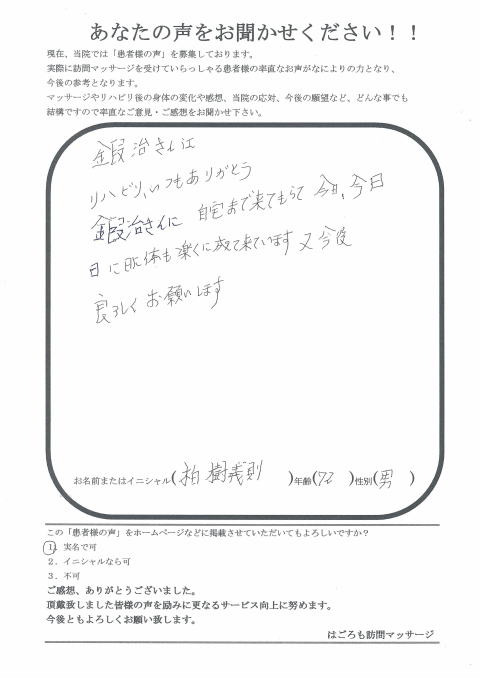 あなたの声をお聞かせください！！
現在、当院では「患者様の声」を募集しております。
実際に訪問マッサージを受けていらっしゃる患者様の率直なお声がなによりの力となり、
今後の参考となります。
マッサージやリハビリ後の身体の変化や感想、当院の応対、今後の願望など、どんな事でも
結構ですので率直なご意見・ご感想をお聞かせ下さい。
鍜治さん江
リハビリ、いつもありがとう
鍜治さんに 自宅まで来てもらって 今日、今日
日に 体も楽くに成て来ています 又今後
良ろしく お願いします
お名前またはイニシャル( 柏 樹義則 )年齢(72 )性別(男 )
この「患者様の声」をホームページなどに掲載させていただいてもよろしいですか？
1．実名で可
2．イニシャルなら可
3．不可
ご感想、ありがとうございました。
頂戴致しました皆様の声を励みに更なるサービス向上に努めます。
今後ともよろしくお願い致します。
はごろも訪問マッサージ